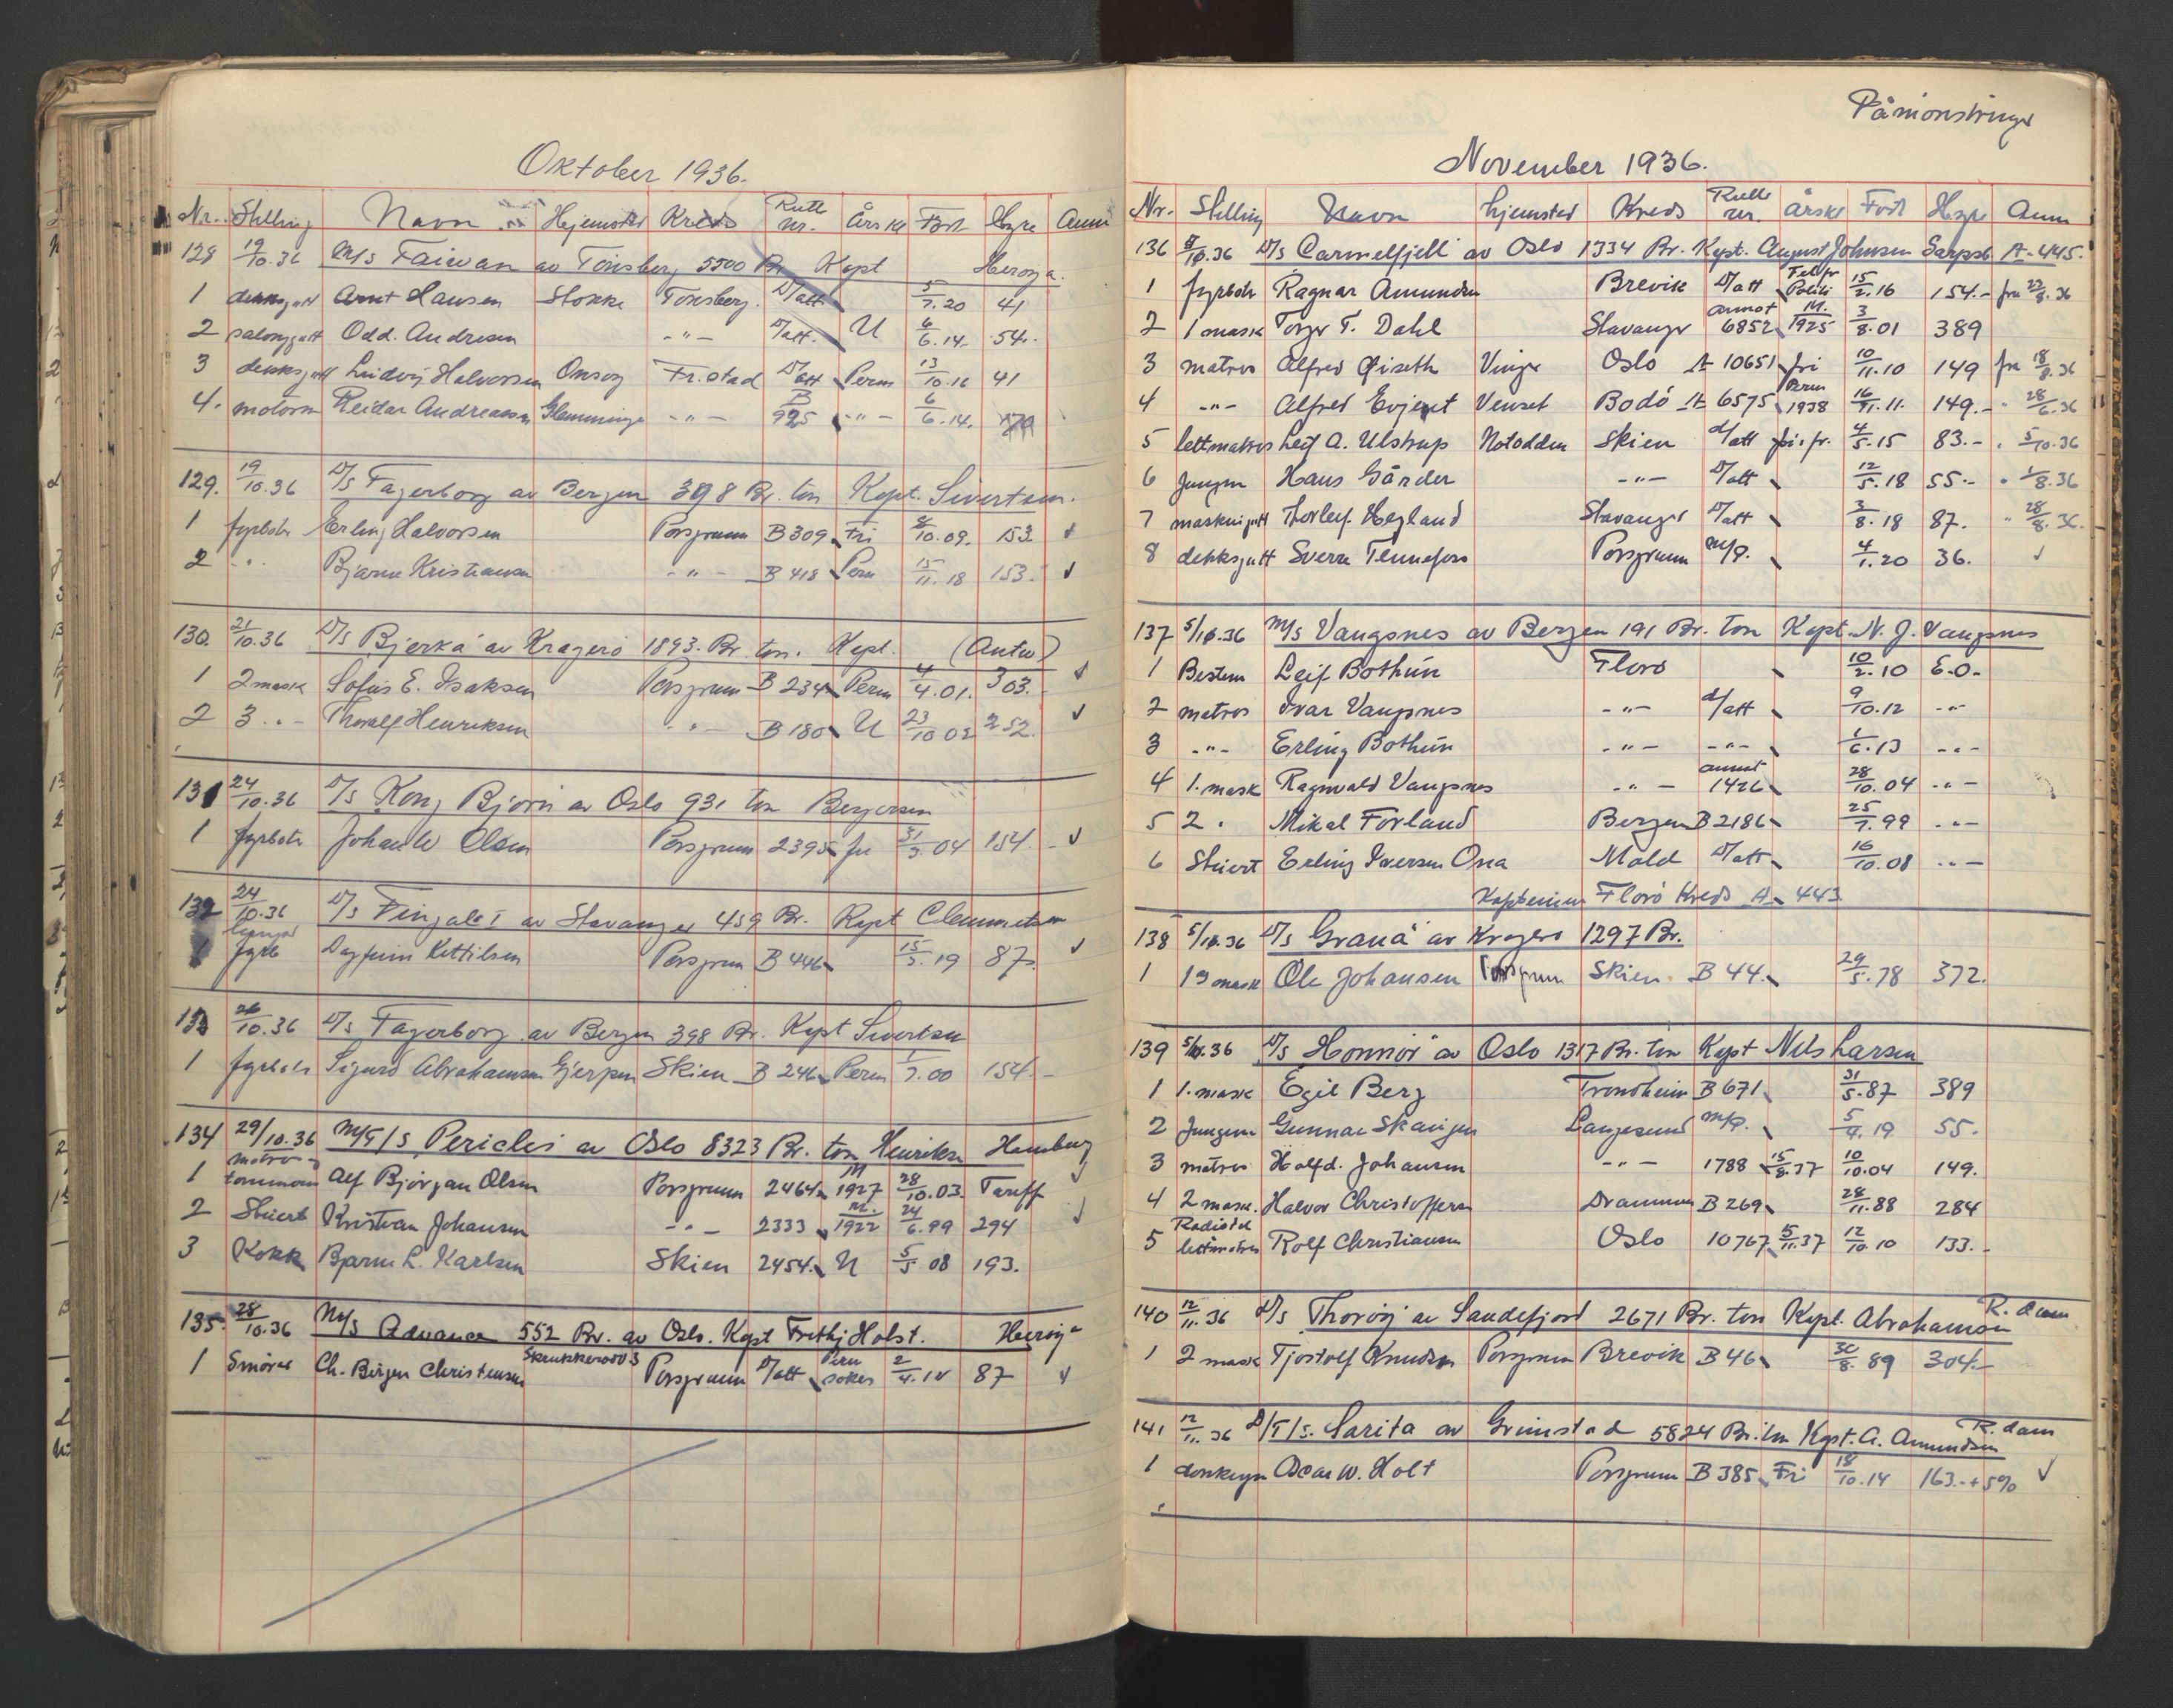 Oktober 1936.
Nr. Stilling Navn Hjemsted Kreds Rulle nr. Årskl Født Hyre Anm
129 19/10.36 M/S Taiwan av Tönsberg 5500 Br Kapt Heröya.
1 dekksgutt Arnt Hansen Stokke Tönsberg. D/att 5/7.20 41
2 salongutt Odd. Andresen -"- D/att. U 6/6.14. 54.-
3 dekksgutt Ludvig Halvorsen Onsöy Fr.stad D/att Perm 13/10.16 41
4. motorm Reidar Andreassen Glemminge -"- B 925 -"- 6/6.14.
129. 19/10.36 D/S Fagerborg av Bergen 398 Br. ton Kapt. Sivertsen.
1 fyrböter Erling Halvorsen Porsgrunn B 309 Fri 2/10.09. 153.
2 -"- Bjarne Kristiansen -"- B 418 Perm 15/11.18 153.
130. 21/10.36 D/S Bjerka av Kragerö 1893. Br. ton. Kapt. (Antw)
1 2 mask Sofus E. Isaksen Porsgrunn B 234 Perm 4/4.01. 303.
2 3 -"- Thoralf Henriksen -"- B 180 U 23/10 02 252.
131 24/10.36 D/S Kong Bjørn av Oslo 931 ton Bergersen
1 fyrböter Johan W Olsen Porsgrunn 2395 fri 31/3.04 154.-
132 24/10.36 D/S Fingal I av Stavanger 459 Br. Kapt Clemmetsen
1 lemper fyrb Dagfinn Kettilsen Porsgrunn B 446 15/5.19 87.
133 26/10.36 D/S Fagerborg av Bergen 398 Br. Kapt Sivertsen
1 fyrböter Sigurd Abrahamsen Gjerpen Skien B 246 Perm 1/7.00 154.-
134 29/10.36 M/T/S Pericles av Oslo 8323 Br. ton Henriksen Hamburg
1 matros tømmerm Alf Bjorgan Olsen Porsgrunn 2464 M 1927 28/10.03. Tariff
2 Stuert Kristian Johansen -"- 2333 M. 1922 24/6.99 294
3 Kokk Bjarne L. Karlsen Skien 2454. U 5/5 08 193.
135. 28/10.36 M/S Advance 552 Br. av Oslo. Kapt Frithj Holst. Heröya
1 Smörer Ch. Birger Christensen Porsgrunn D/att Perm 2/4.14 87
Påmönstringer
November 1936.
Nr. Stilling Navn Hjemsted Kreds Rulle nr. årskl Født Hyre Anm
136 5/11.36 D/S Carmelfjell av Oslo 1334 Br. Kapt. August Johnsen Sarpsb A-445.
1 fyrböter Ragnar Amundsen Brevik D/att 15/2.16 154.- fra 22/8.36
2 1 mask Torger T. Dahl Stavanger annot 6852 M. 1925 3/8.01 389
3 matros Alfred Qiseth Vinge Oslo A 10651 fri 10/11.10 149 fra 18/8.36
4 -"- Alfred Evjent Venset Bodö A 6575 Perm 1938 16/11.11. 149.- " 28/6.36
5 lettmatros Leif A. Ulstrup Notodden Skien d/att fri. fr. 4/5.15 83.- " 5/10.36
6 Jungm Hans Gärder -"- D/att 12/5.18 55.- " 1/8.36
7 maskingutt Thorleif Hegland Stavanger D/att 3/8.18 87. " 28/8.36.
8 dekksgutt Sverre Tennefoss Porsgrunn m/p. 4/1.20 36.
137 5/11.36 M/S Vangsnes av Bergen 191 Br. ton Kapt. N. J. Vangsnes
1 Bestm Leif Bothun Florö 10/2.10 6-0-
2 matros Ivar Vangsnes -"- d/att 9/10.12 -"-
3 -"- Erling Bothun -"- -"- 1/6.13 -"-
4 1. mask Ragnvald Vangsnes -"- annot 1426 28/10.04 -"-
5 2 " Mikal Förland Bergen B 2186 25/7.99 -"-
6 Stuert Erling Iversen Osa Mold D/att 16/10.08 -"-
Kapteinen Florö Kreds A 443
138 5/11.36 D/S Granå av Kragerö 1297 Br.
1 1ste mask Ole Johansen Porsgrunn Skien. B 44. 29/5.78 372.
139 5/11.36 D/S Honnör av Oslo 1317 Br. ton Kapt Nils Larsen
1 1. mask Egil Berg Trondheim B 671 31/5.87 389
2 Jungm Gunnar Skavgen Langesund m/p. 5/4.19 55.
3 matros Halfd. Johansen -"- 1788 15/8.37 10/10.04 149.
4 2 mask. Halvor Christoffersen Drammen B 269 28/11.88 284
5 Radiotel lettmatros Rolf Christiansen Oslo 10767 5/11.37 12/10.10 133.-
140 12/11.36 D/S Thoröy av Sandefjord 2671 Br. ton Kapt. Abrahamsen R. dam
1 2 mask Tjostolf Knudsen Porsgrunn Brevik B 46 30/8.89 304.-
141 12/11.36 D/T/S. Sarita av Grimstad 5824 Br. ton Kapt. A. Amundsen R. dam
1 donkeym Oscar W. Holt Porsgrunn B 385 Fri 18/10.14 163.-+5%